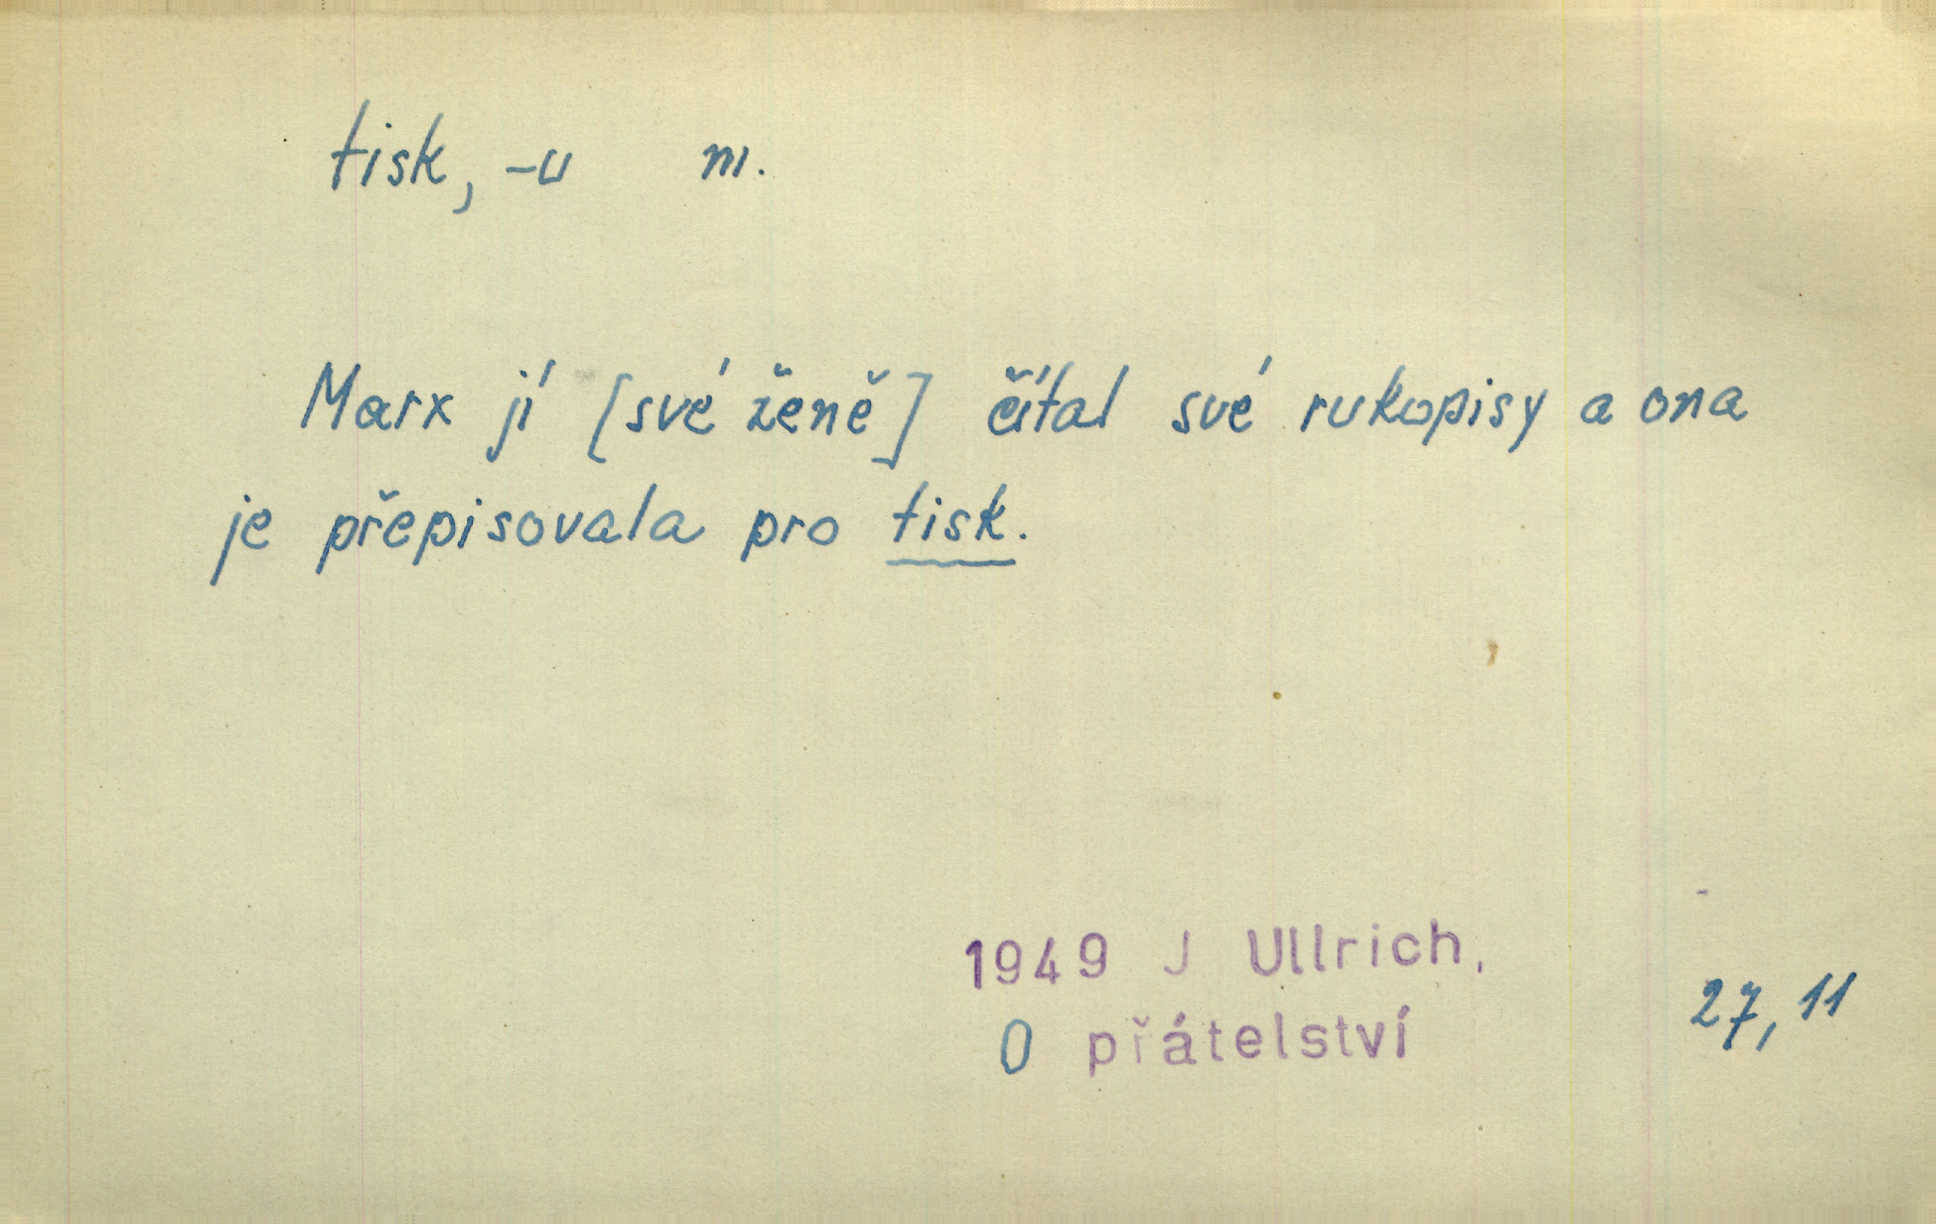 tisk, -u m.
Marx jí [své ženě] čítal své rukopisy a ona
je přepisovala pro tisk.
1949 J Ullrich,
O přátelství
27, 11